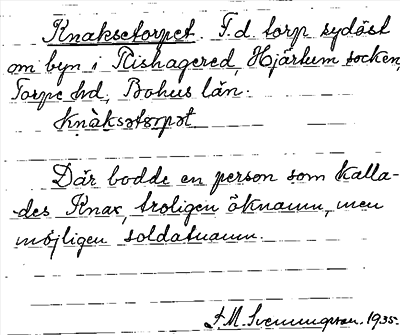 Knaksetorpet. F.d. torp sydöst
om byn i Rishagered, Hjärtum socken,
Torpe hd, Bohus län.
knàksətɔrpət
Där bodde en person som kalla-
des Knax, troligen öknamn, men
möjligen soldatnamn.
J.M. Svenningsson. 1935.